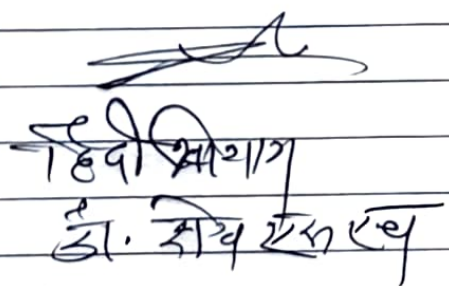 हिंदी विभाग
डॉ. शेख एस एच